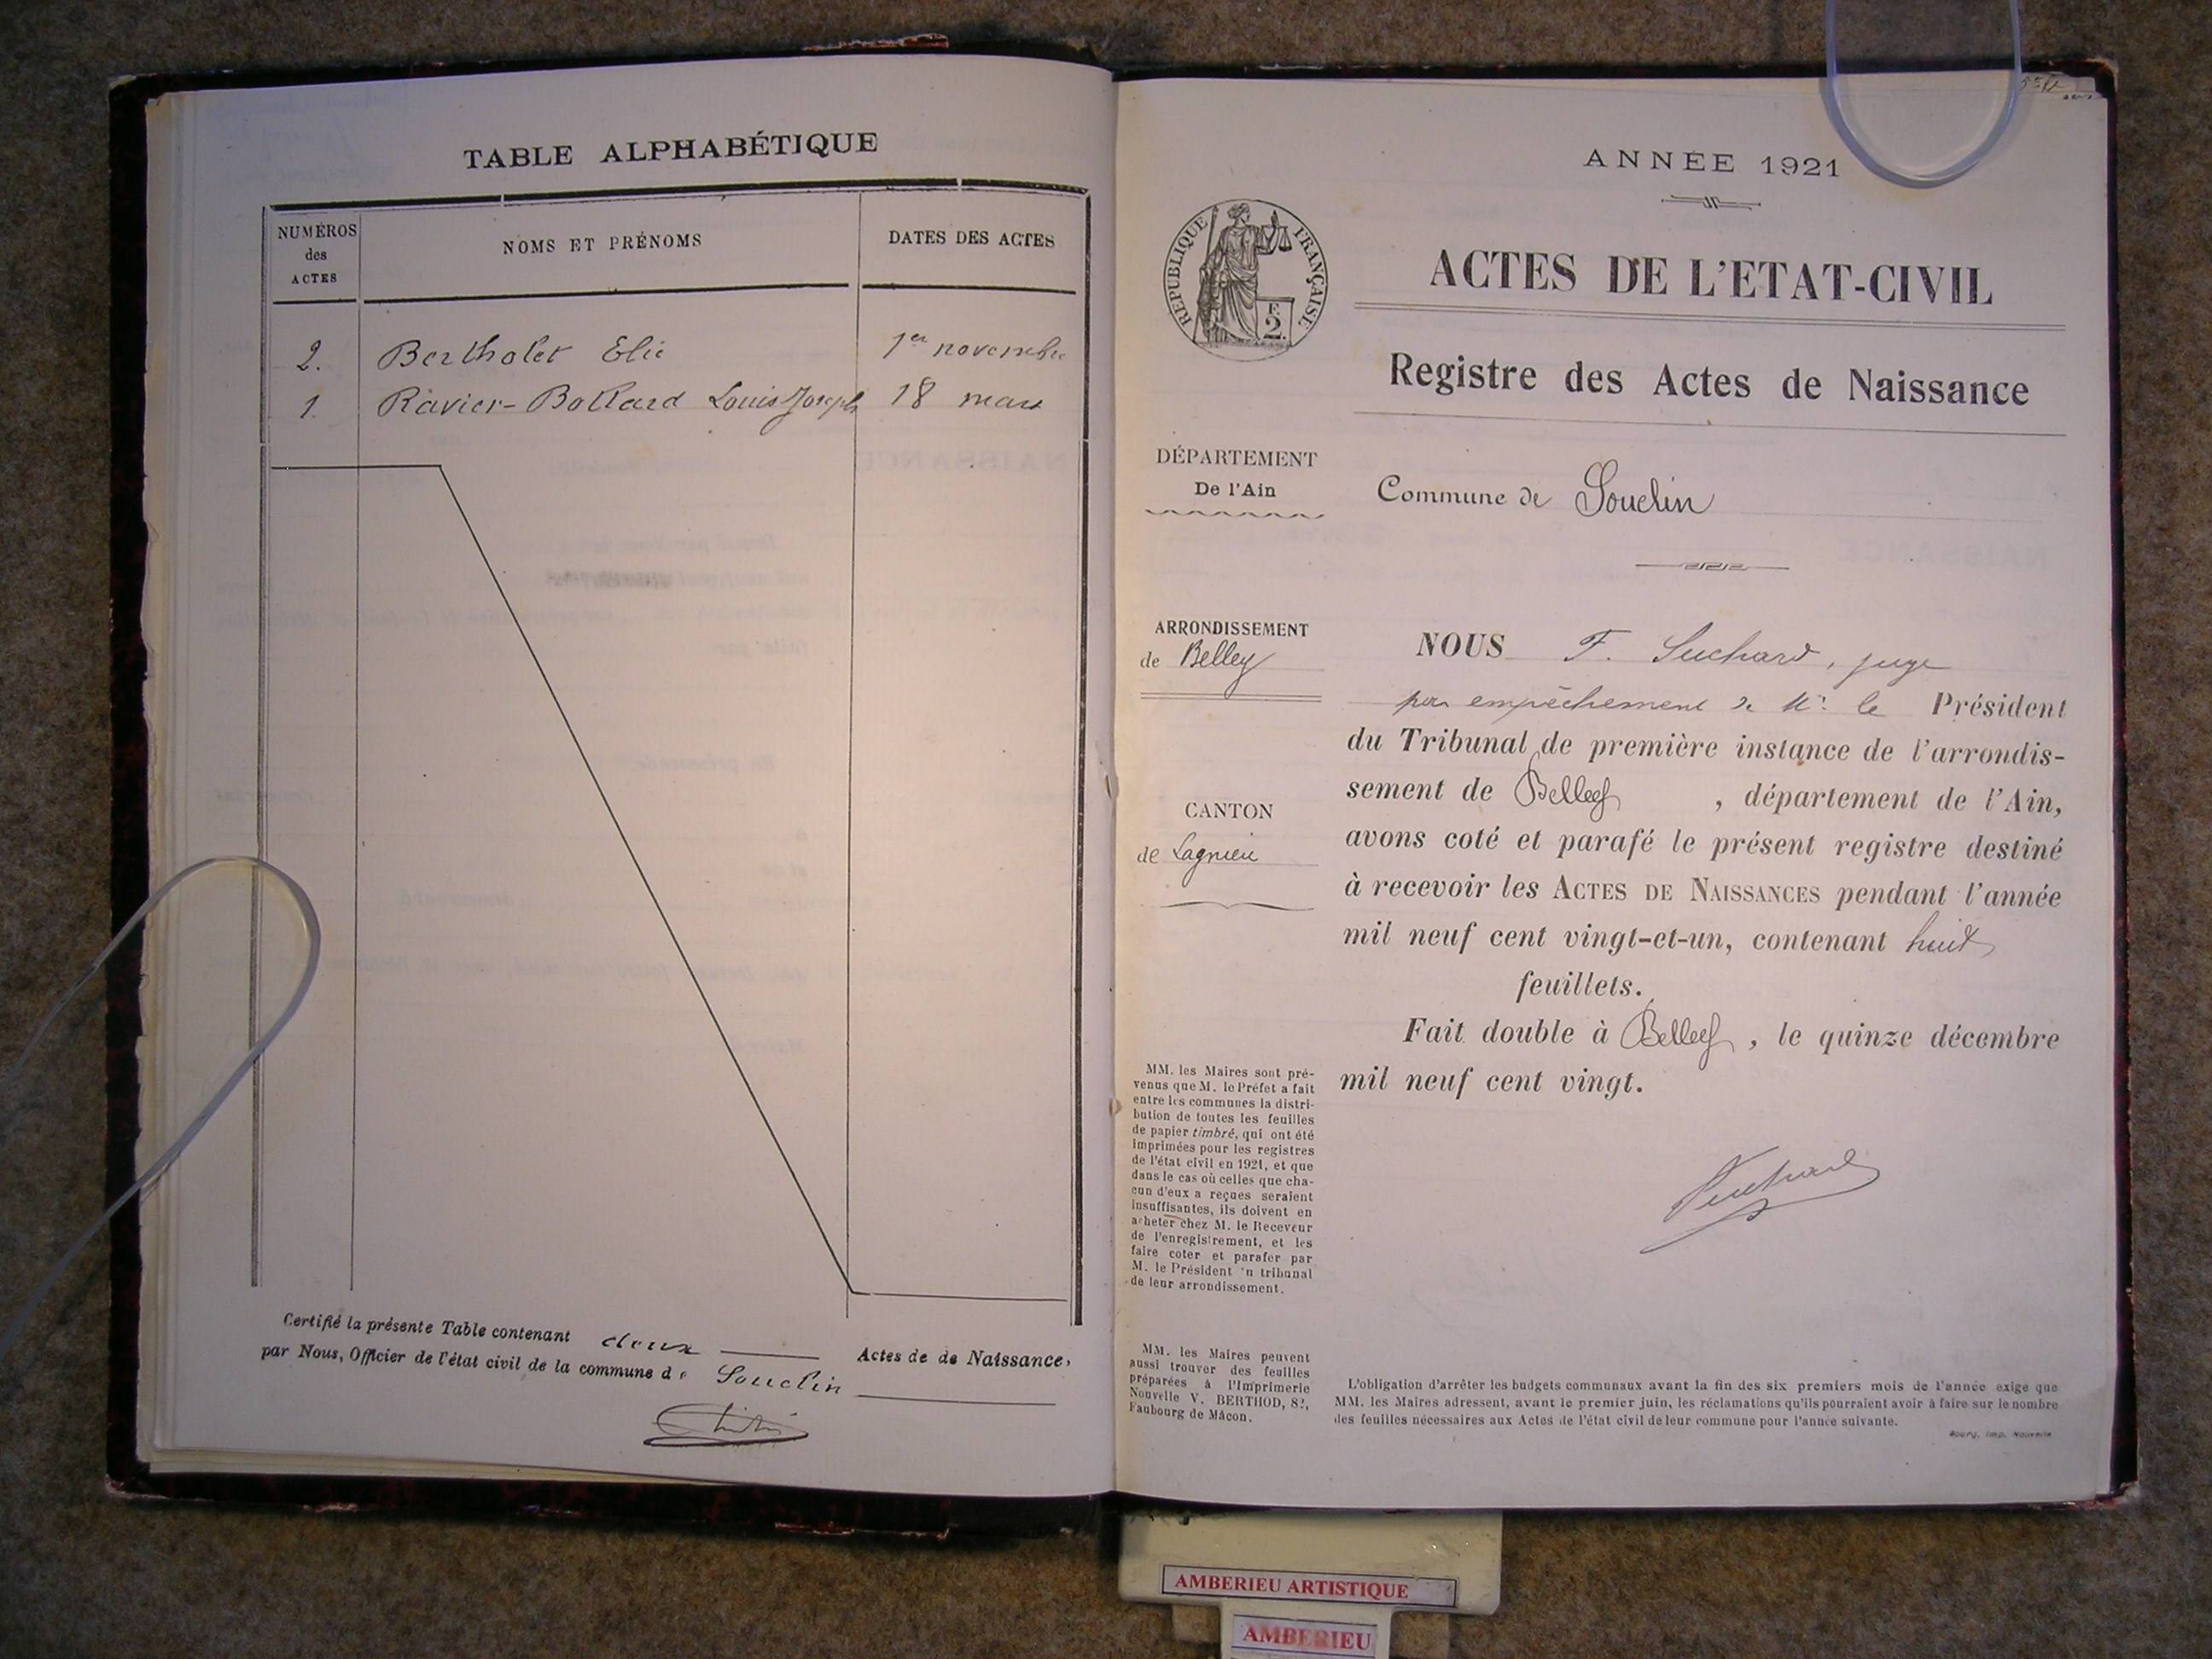 TABLE ALPHABÉTIQUE
NUMÉROS
des
ACTES
NOMS ET PRÉNOMS
DATES DES ACTES
2. Bertholet Elie 1er novembre
1. Ravier-Bollard Louis Joseph 18 mars
Certifié la présente Table contenant deux Actes de de Naissance,
par Nous, Officier de l'état civil de la commune de Souclin
ANNÉE 1921
RÉPUBLIQUE FRANÇAISE
F.
2.
ACTES DE L'ETAT-CIVIL
Registre des Actes de Naissance
DÉPARTEMENT
De l'Ain
Commune de Souclin
ARRONDISSEMENT
de Belley
CANTON
de Lagnieu
NOUS F. Suchard, juge
par empêchement de Mr. le Président
du Tribunal de première instance de l'arrondis-
sement de Belley, département de l'Ain,
avons coté et parafé le présent registre destiné
à recevoir les ACTES DE NAISSANCES pendant l'année
mil neuf cent vingt-et-un, contenant huit
feuillets.
Fait double à Belley, le quinze décembre
mil neuf cent vingt.
MM. les Maires sont pré-
venus que M. le Préfet a fait
entre les communes la distri-
bution de toutes les feuilles
de papier timbré, qui ont été
imprimées pour les registres
de l'état civil en 1921, et que
dans le cas où celles que cha-
cun d'eux a reçues seraient
insuffisantes, ils doivent en
acheter chez M. le Receveur
de l'enregistrement, et les
faire coter et parafer par
M. le Président 'n tribunal
de leur arrondissement.
MM. les Maires peuvent
aussi trouver des feuilles
préparées à l'Imprimerie
Nouvelle V. BERTHOD, 82,
Faubourg de Mâcon.
L'obligation d'arrêter les budgets communaux avant la fin des six premiers mois de l'année exige que
MM. les Maires adressent, avant le premier juin, les réclamations qu'ils pourraient avoir à faire sur le nombre
des feuilles nécessaires aux Actes de l'état civil de leur commune pour l'année suivante.
Bourg, Imp. Nouvelle
AMBERIEU ARTISTIQUE
AMBERIEU